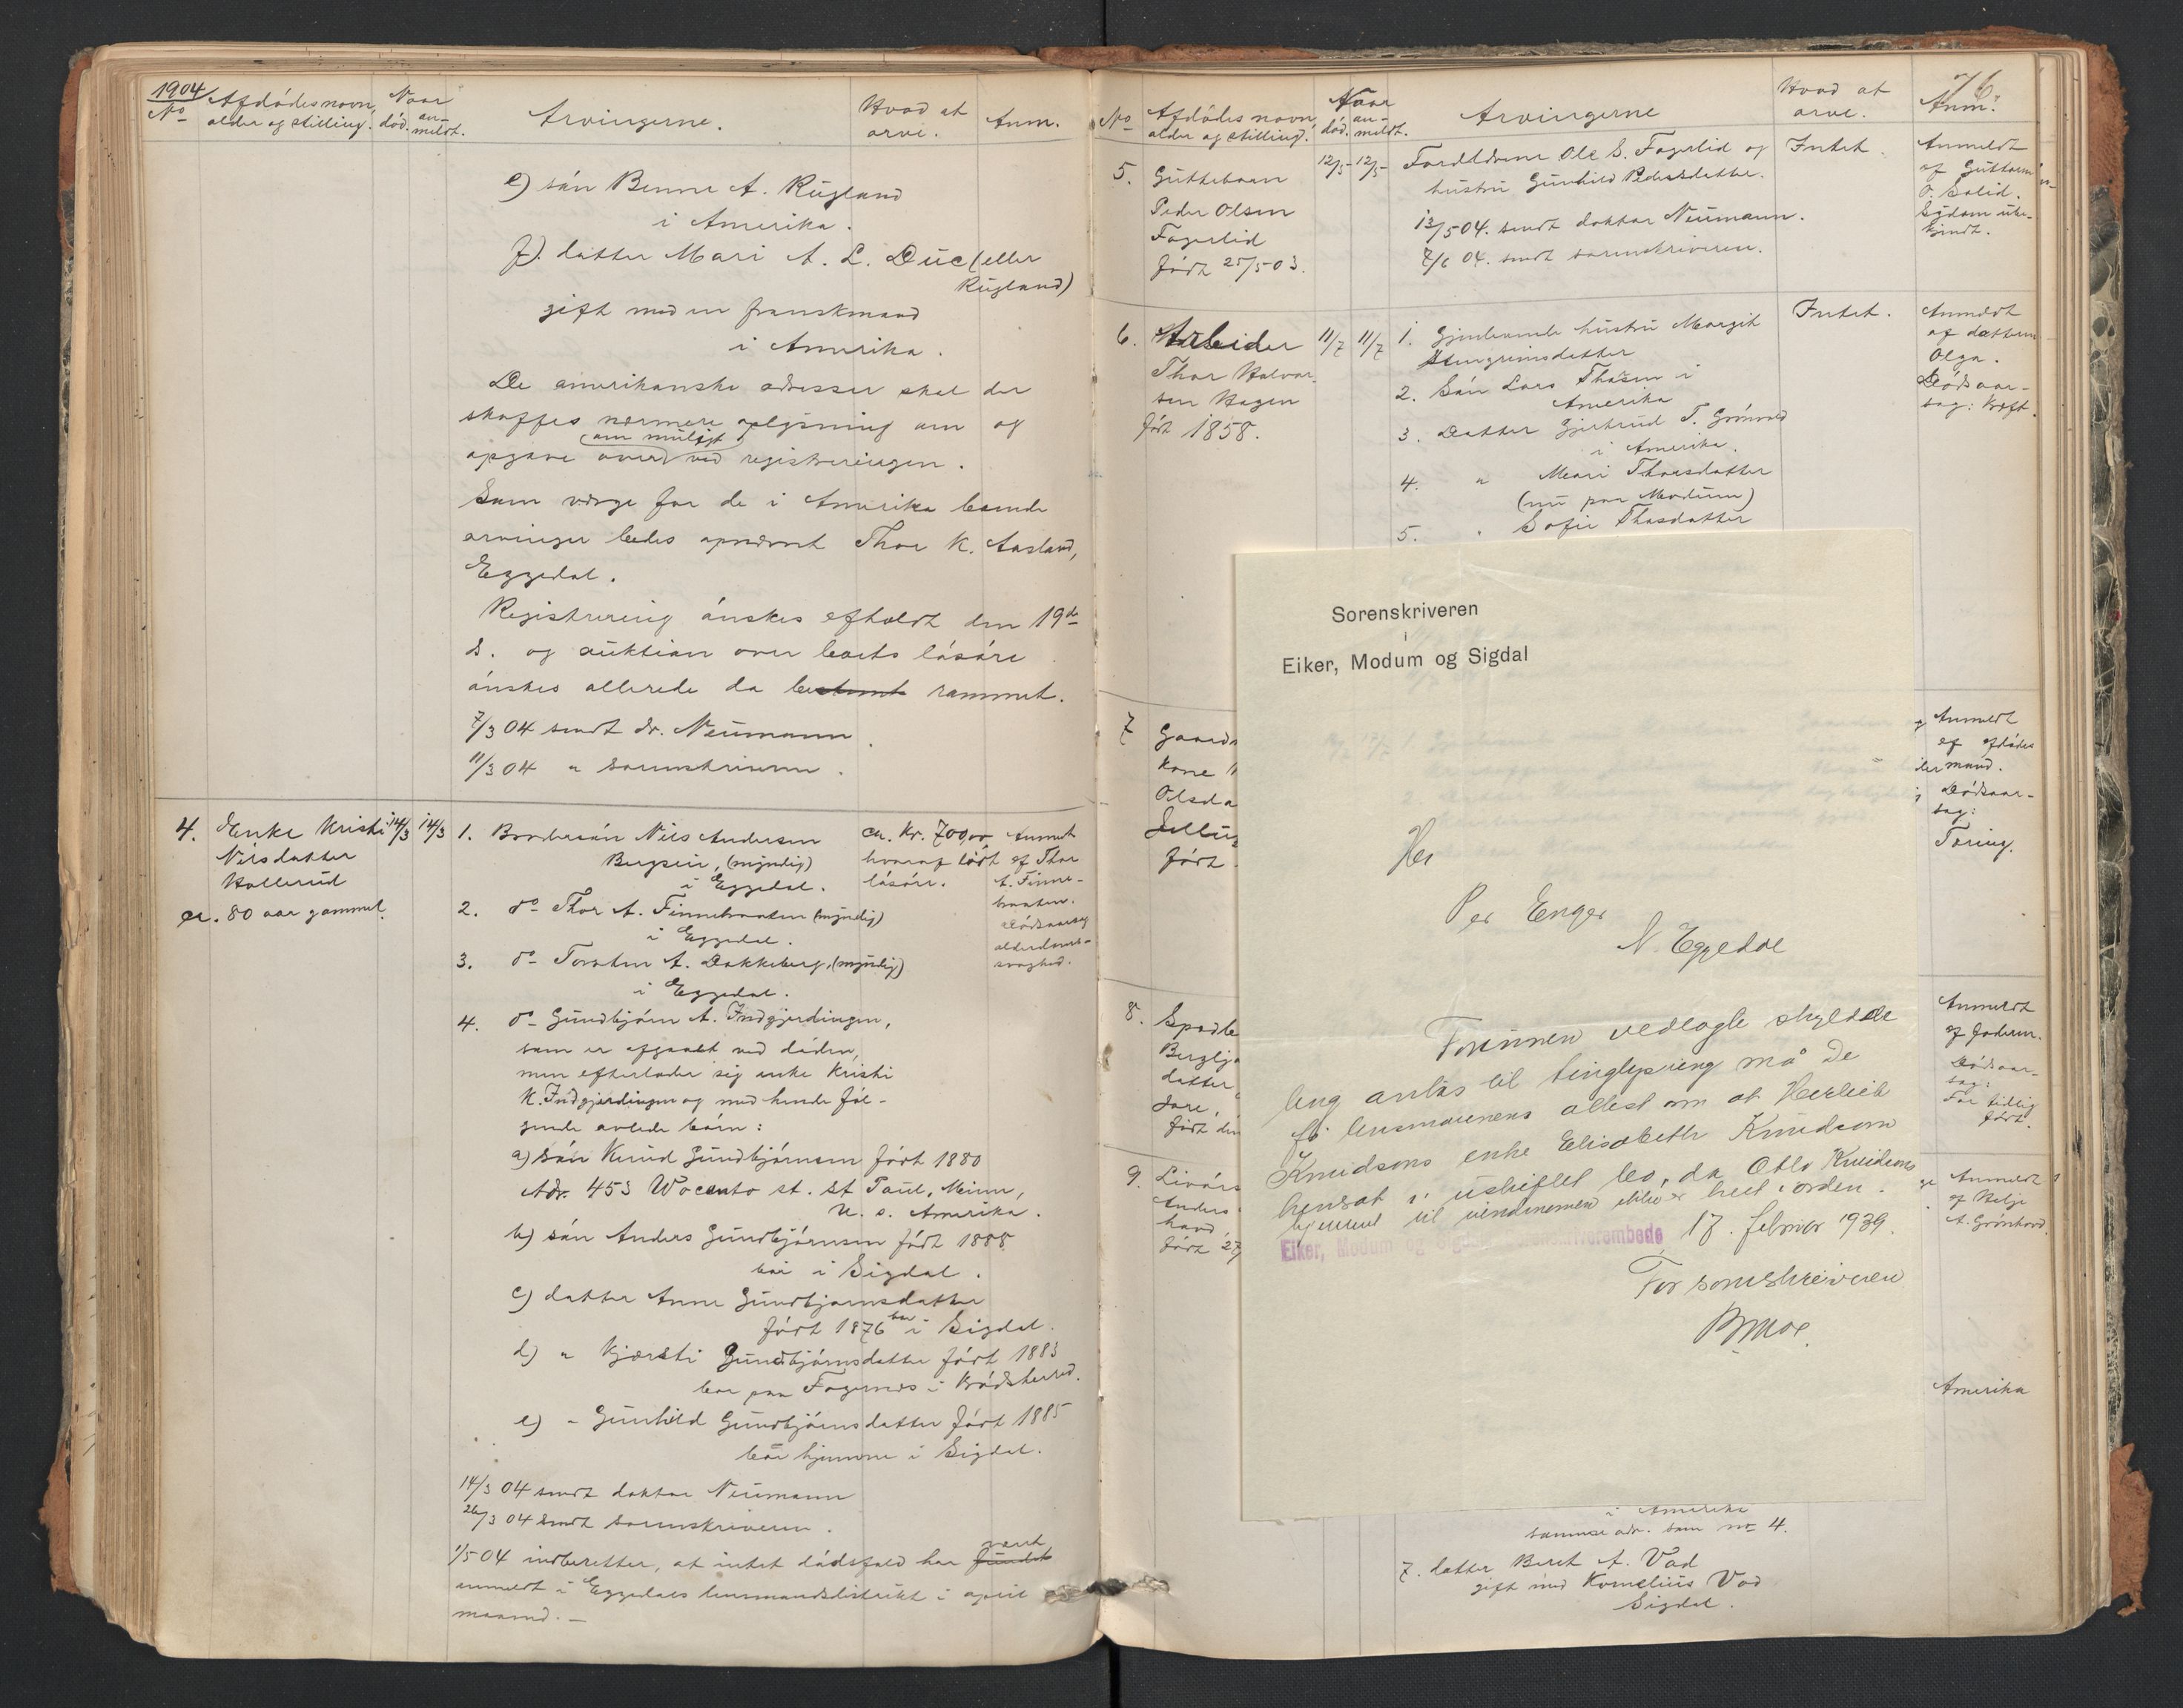 1904
No Afdødes navn, alder og stilling. Naar død. an-meldt. Arvingerne. Hvad at arve. Anm.
e) søn Benne A. Rugland
i Amerika.
f). datter Mari A. L. Duc (eller
Rugland)
gift med en franskmand
i Amerika.
De amerikanske adresser skal der
skaffes nærmere oplysning om og
opgave over (om muligt) ved registreringen.
Som værge for de i Amerika boende
arvinger bedes opnævnt Thor K. Aasland,
Eggedal.
Registrering ønskes afholdt den 19de
d. og auktion over boets løsøre
ønskes allerede da berammet.
7/3 04 sendt dr. Neumann.
11/3 04 " sorenskriveren.
4. Enke Kristi
Nilsdatter
Hollerud
ca. 80 aar gammel.
14/3 14/3
1. Brodersøn Nils Andersen
Bergsein, (myndig)
i Eggedal.
2. do Thor A. Finnebraaten (myndig)
i Eggedal.
3. do Torsten A. Dokkeberg, (myndig)
i Eggedal.
4. do Gundbjørn A. Indgjerdingen,
som er afgaaet ved døden,
men efterlader sig enke Kristi
K. Indgjerdingen og med hende føl-
gende avlede børn:
a) søn Knud Gundbjørnsen født 1880
Adr. 453 Wocento st. St Paul, Minn,
U. S. Amerika.
b) søn Anders Gundbjørnsen født 1888
bor i Sigdal.
c) datter Anne Gundbjørnsdatter
født 1876 bor i Sigdal.
d) " Kjersti Gundbjørnsdatter født 1883
bor paa Fagernes i Krødsherred.
e) " Gunhild Gundbjørnsdatter født 1885
bor hjemme i Sigdal.
ca. Kr. 700,00
hvoraf lidt
løsøre.
Anmeldt
af Thor
A. Finne-
braaten.
Dødsaarsag
alderdoms-
svaghed.
14/3 04 sendt doktor Neumann
26/3 04 sendt sorenskriveren.
1/5 04 indberettes, at intet dødsfald har været
anmeldt i Eggedals lensmandsdistrikt i april
maaned. —
76
No Afdødes navn, alder og stilling. Naar død. an-meldt. Arvingerne Hvad at arve. Anm.
5. Guttebarn
Peder Olsen
Fagerlid
født 25/5 03.
12/5 12/5
Forældrene Ole S. Fagerlid og
hustru Gunhild Pedersdatter.
13/5 04. sendt doktor Neumann.
7/6 04. sendt sorenskriveren.
Intet.
Anmeldt
af Guttorm
O. Solid.
Sygdom ube-
kjendt.
6. Arbeider
Thor Halvor-
sen Hagen
født 1858.
11/7 11/7
1. Gjenlevende hustru Margit
Stengrimsdatter
2. Søn Lars Thorsen i
Amerika
3. Datter Gjertrud T. Grønvold
i Amerika.
4. " Mari Thorsdatter
(nu paa Modum)
5. " Sofie Thorsdatter
Intet.
Anmeldt
af datteren
Olga.
Dødsaar-
sag: Kræft.
7 Gaard
kone
Olsda
født
Anmeldt
af afdødes
mand.
Dødsaar-
sag:
Tæring.
8. Spædb
Bergljo
datter
født den
Anmeldt
af faderen.
Dødsaar-
sag:
For tidlig
født.
9. Livørs
Anders
født 27
Anmeldt
af Helje
A. Grønhovd.
Amerika
Sorenskriveren
i
Eiker, Modum og Sigdal
Her
Per Enger
N. Eggedal
Forinnen vedlagte skyldde
ling antas til tinglysning må De
få lensmannens attest om at
Knudsons enke Elisabeth Knudson
hensat i uskiftet bo, da Otto Knudsons
hjemmel til eiendommen ikke er helt i orden.
Eiker, Modum og Sigdal sorenskriverembede, 17. februar 1939.
For sorenskriveren
BMoe.
i Amerika
samme adr. som no 4.
7. datter Berit A. Vad
gift med Kornelius Vad
Sigdal.